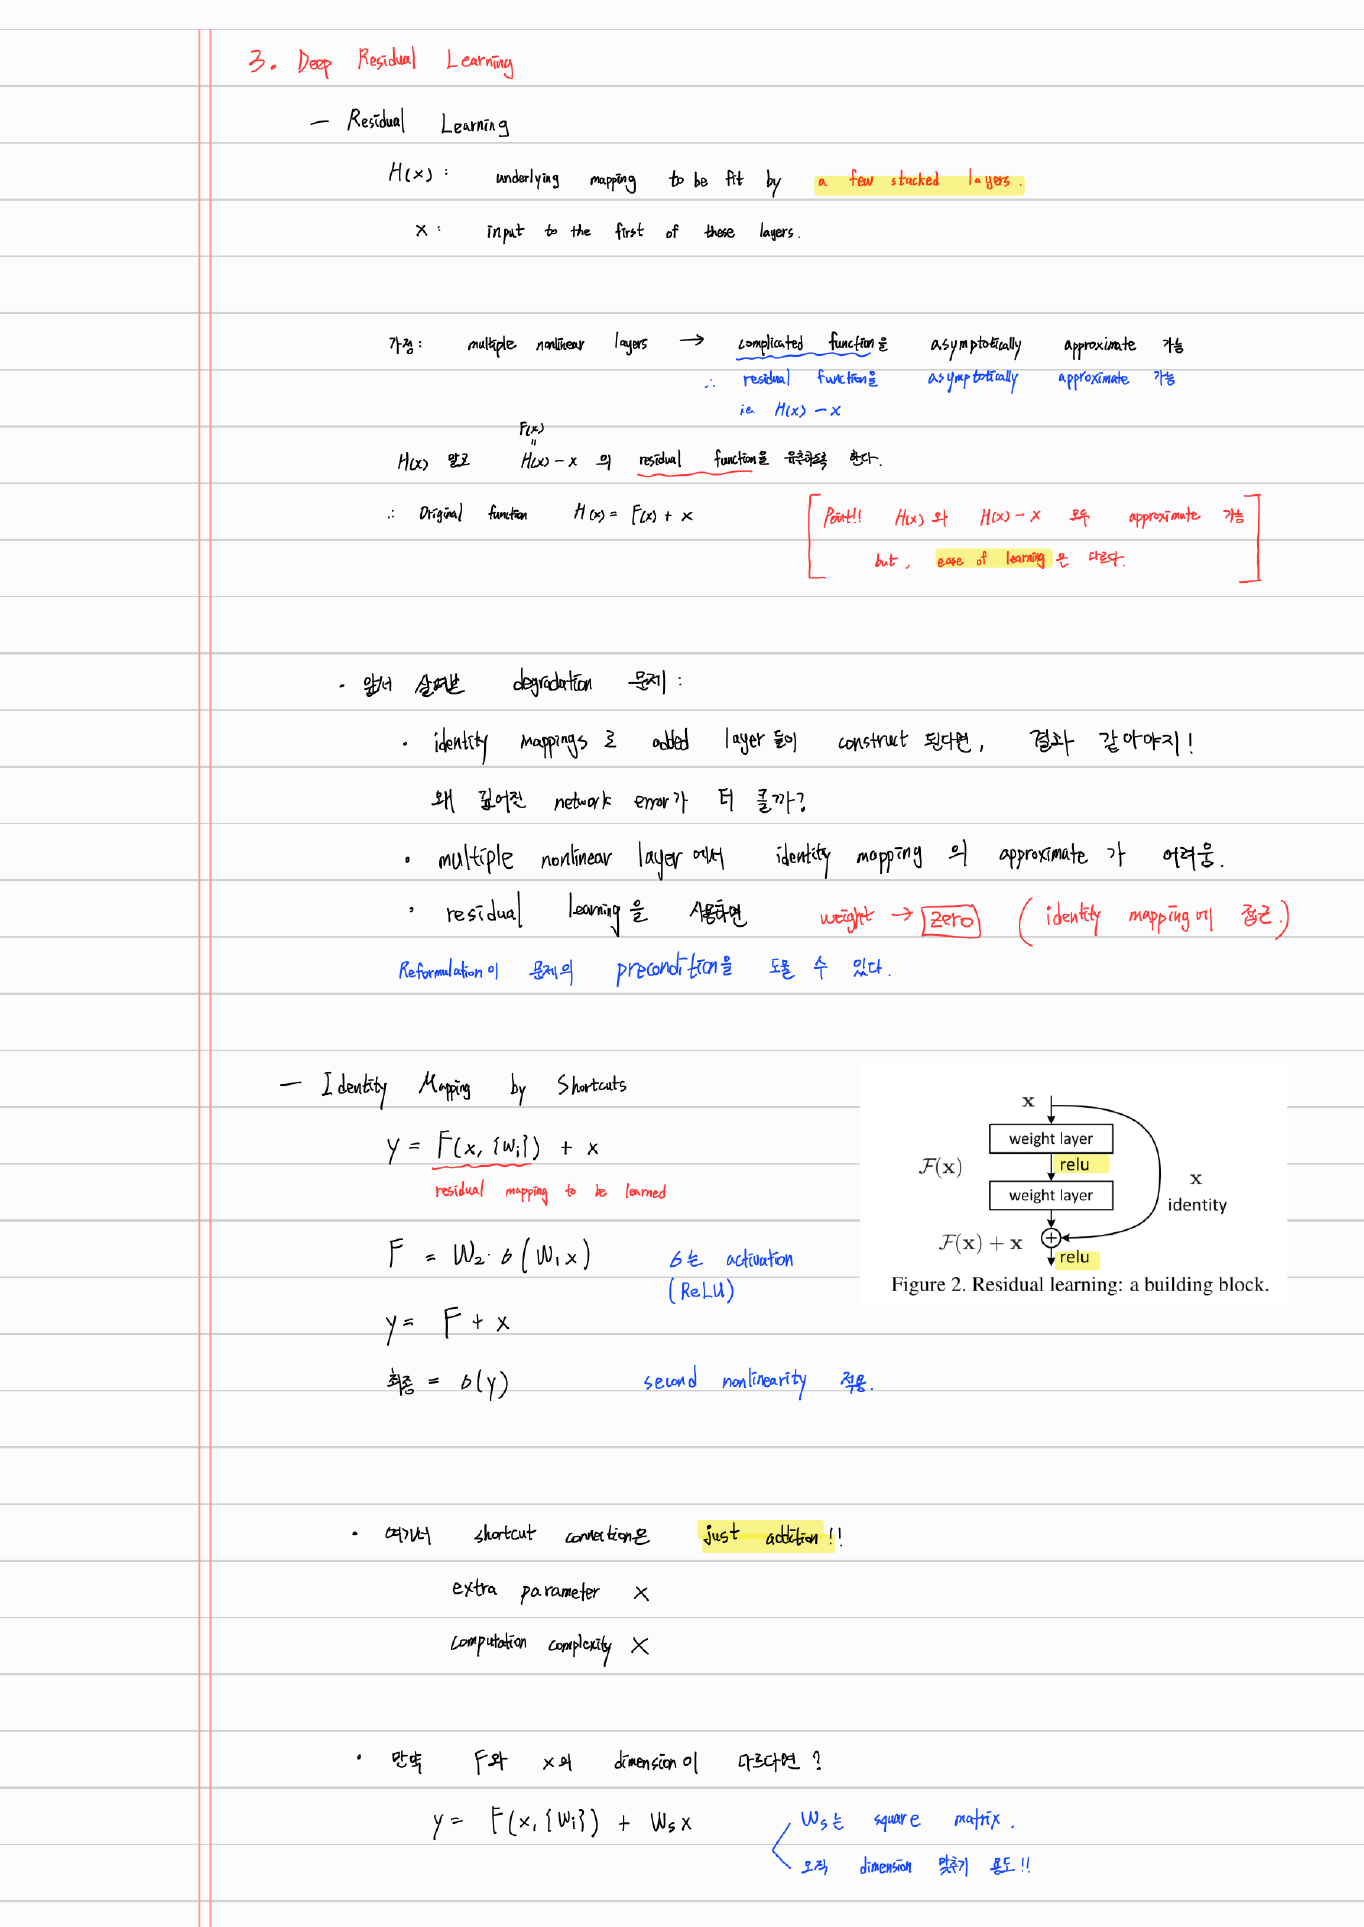 3. Deep Residual Learning
— Residual Learning
H(x) : underlying mapping to be fit by a few stacked layers.
x : input to the first of these layers.
가정 : multiple nonlinear layers → complicated function을 asymptotically approximate 가능
∴ residual function을 asymptotically approximate 가능
ie H(x) - x
F(x)
=
H(x) 말고 H(x) - x 의 residual function을 유추하도록 한다.
∴ Original function H(x) = F(x) + x
[Point!! H(x) 와 H(x) - x 모두 approximate 가능
but, ease of learning 은 다르다.]
· 앞서 살펴본 degradation 문제 :
· identity mappings 로 added layer 들이 construct 된다면, 결과 같아야지!
왜 깊어진 network error가 더 클까?
· multiple nonlinear layer 에서 identity mapping 의 approximate 가 어려움.
· residual learning을 사용하면 weight → zero (identity mapping에 접근.)
Reformulation이 문제의 precondition을 도울 수 있다.
— Identity Mapping by Shortcuts
y = F(x, {Wi}) + x
residual mapping to be learned
F = W₂ · σ(W₁x) σ는 activation
(ReLU)
y = F + x
최종 = σ(y) second nonlinearity 적용.
x
weight layer
F(x)
relu
weight layer
x
identity
F(x) + x
relu
Figure 2. Residual learning: a building block.
· 여기서 shortcut connection은 just addition!!
extra parameter X
computation complexity X
· 만약 F와 x의 dimension이 다르다면?
y = F(x, {Wi}) + Ws x
Ws는 square matrix.
오직 dimension 맞추기 용도!!